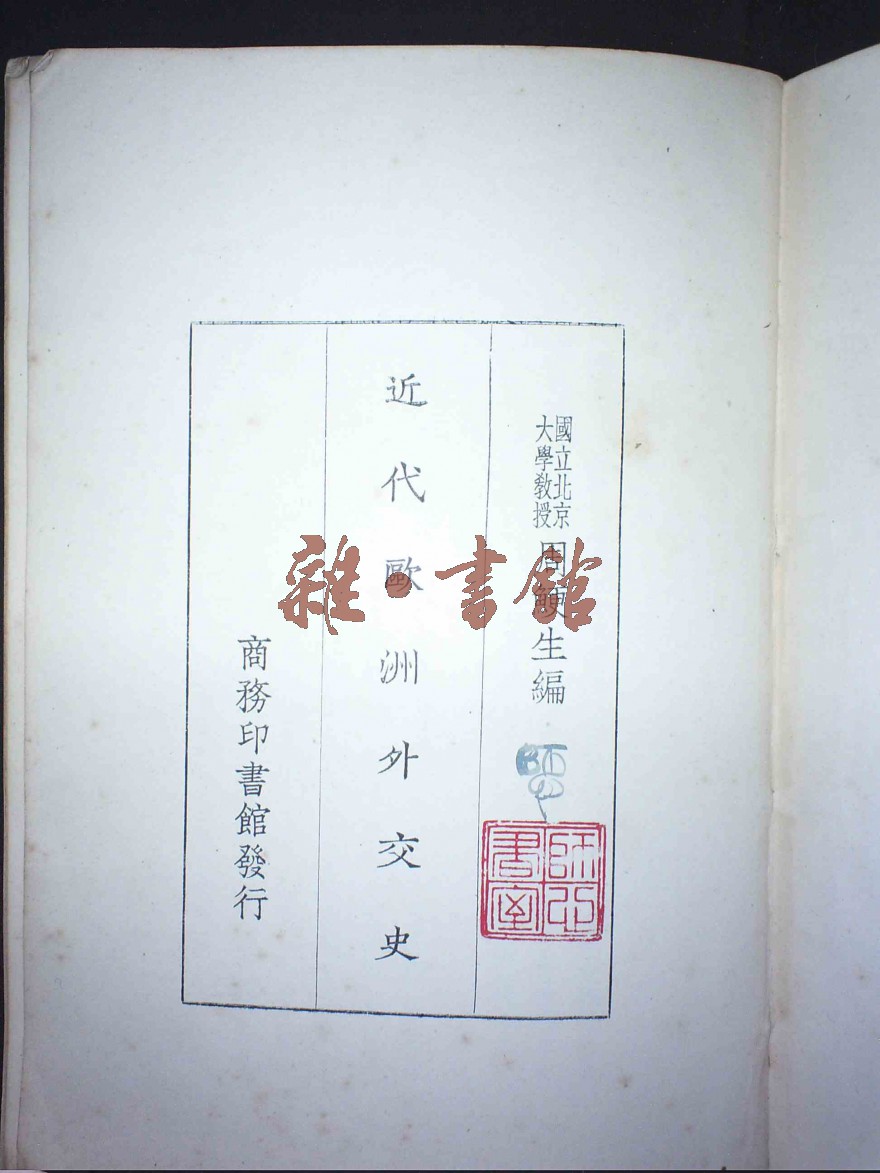 國立北京
大學教授
周鯁生編
近代歐洲外交史
商務印書館發行
雜·書館
師㞢書室